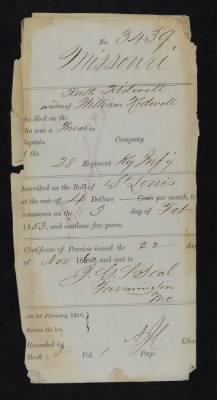 No. 3439
Missouri
Ruth Kidwell
widow of William Kidwell
who died on the
who was a Private in
Captain Company
of the
28 Regiment Ky Infy
Inscribed on the Roll of St Louis
at the rate of 4 Dollars Cents per month, to
commence on the 3 day of Feb
1853, and continue five years.
Certificate of Pension issued the 22 day
of Nov 1860, and sent to
J. C. Beal
Farmington
Mo
Act 3d February, 1853.
Recorded by A.H. Clerk
Book Vol. 1 Page